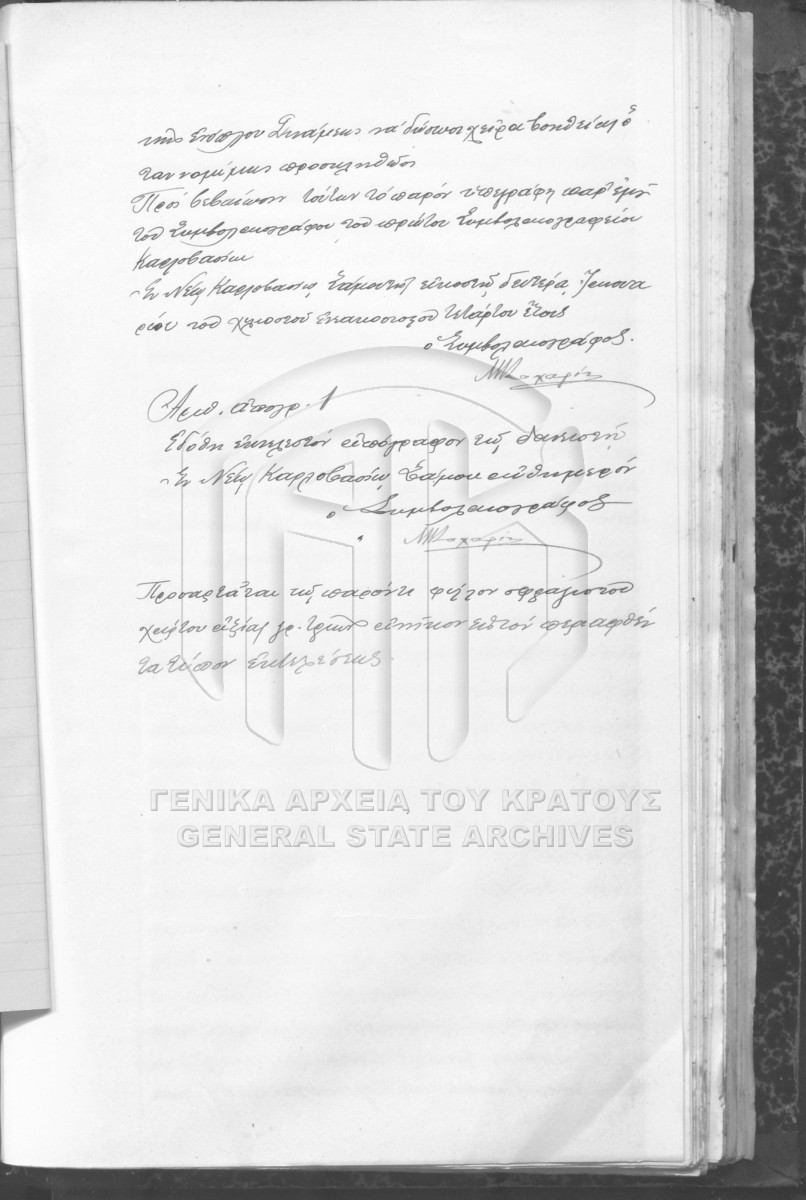 της Ενόπλου Δυνάμεως να δώσωσι χείρα βοηθείας ὅ
ταν νομίμως προσκληθῶσι
Πρὸς βεβαίωσιν τούτων τὸ παρὸν ὑπεγράφη παρ' ἐμοῦ
τοῦ Συμβολαιογράφου τοῦ πρώτου Συμβολαιογραφείου
Καρλοβασίων
Ἐν Νέῳ Καρλοβασίῳ Σάμου τῇ εἰκοστῇ δευτέρᾳ Ἰανουα
ρίου τοῦ χιλιοστοῦ ἐννακοσιοστοῦ τετάρτου ἔτους
ὁ Συμβολαιογράφος.
Ἀριθ. ἀπογρ. 1
Ἐδόθη ἐκτελεστὸν ἀπόγραφον τῷ δανειστῇ
Ἐν Νέῳ Καρλοβασίῳ Σάμου αὐθημερόν
ὁ Συμβολαιογράφος
Προσαρτᾶται τῷ παρόντι φύλλον σφραγιστοῦ
χάρτου ἀξίας γρ. ἀνῆκον εἰς τὸν
τύπον ἐκτελέσεως.
ΓΕΝΙΚΑ ΑΡΧΕΙΑ ΤΟΥ ΚΡΑΤΟΥΣ
GENERAL STATE ARCHIVES